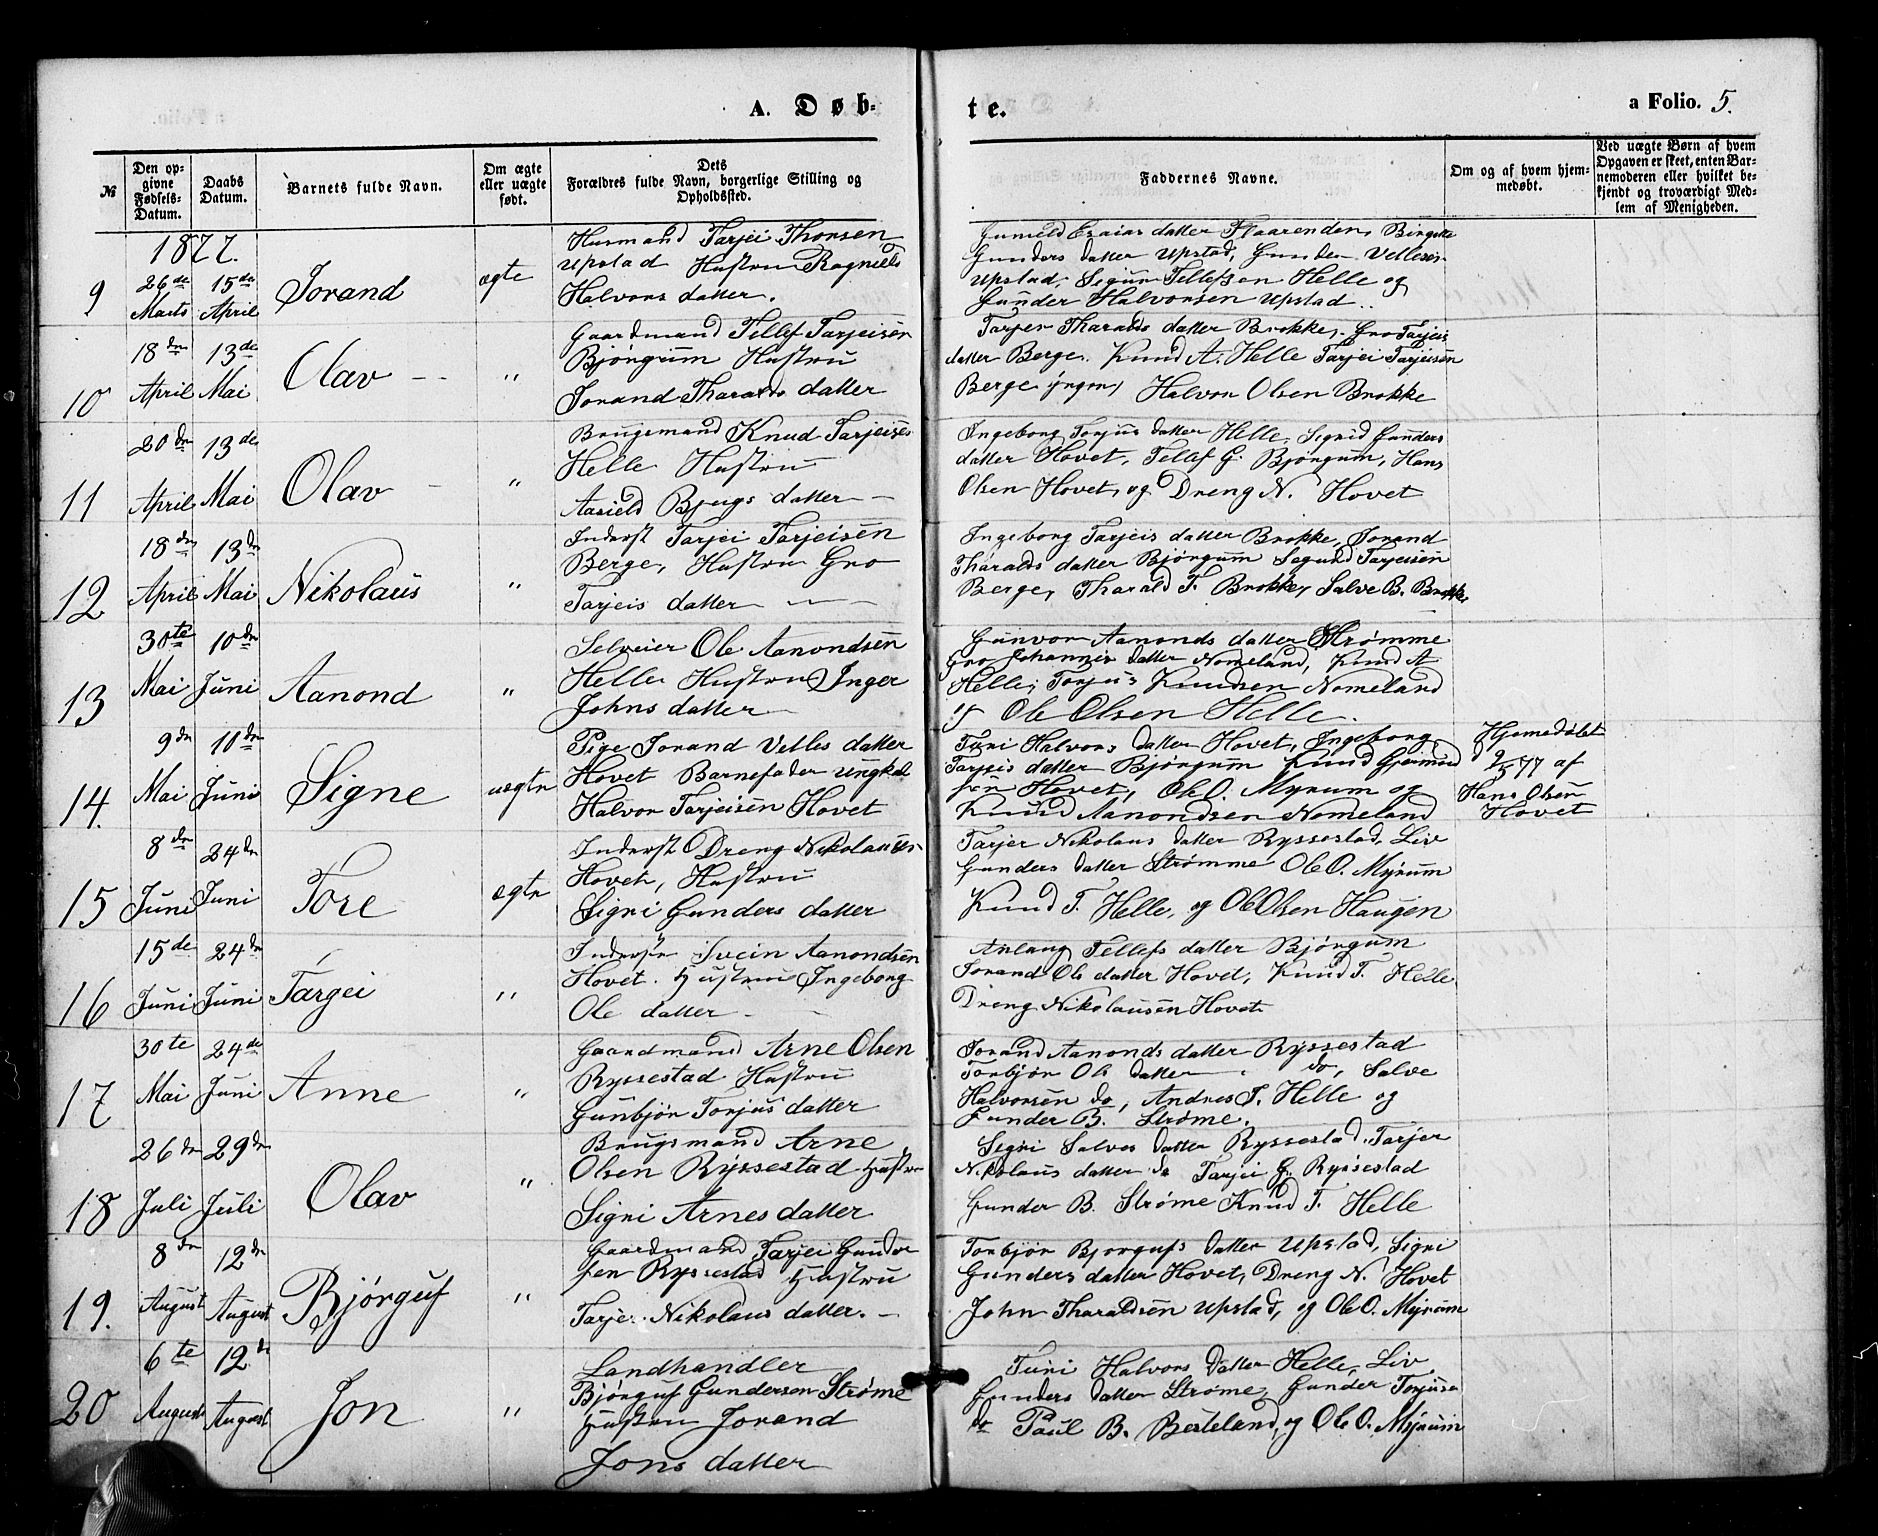 A. Døb-
te.
a Folio. 5.
№
Den op-
givne
Fødsels-
Datum.
Daabs
Datum.
Barnets fulde Navn.
Om ægte
eller uægte
født.
Dets
Forældres fulde Navn, borgerlige Stilling og
Opholdssted.
Faddernes Navne.
Om og af hvem hjem-
medøbt.
Ved uægte Børn af hvem
Opgaven er skeet, enten Bar-
nemoderen eller hvilket be-
kjendt og troværdigt Med-
lem af Menigheden.
1877.
9
26de
Marts
15de
April
Jorand
ægte
Husmand Tarjei Thorsen
Upstad Hustru Ragnild
Halvors datter.
Gunild Esaias datter Flaarenden, Birgitte
Gunders datter Upstad, Gunder
Upstad, Sigur Tellefsen Helle og
Gunder Halvorsen Upstad.
10
18de
April
13de
Mai
Olav --
"
Gaardmand Tellef Tarjeisen
Bjørgum Hustru
Jorand Tharalds datter
Tarjer Tharalds datter Brokke, Gro Tarjeis
datter Berge. Knud A. Helle Tarjei Tarjeisen
Berge yngre, Halvor Olsen Brokke
11
20de
April
13de
Mai
Olav -
"
Brugsmand Knud Tarjeisen
Helle Hustru
Aasield Bjugs datter -
Ingeborg Torjus datter Helle, Sigrid Gunders
datter Hovet, Tellef G. Bjørgum, Hans
Olsen Hovet, og Dreng N. Hovet
12
18de
April
13de
Mai
Nikolaus
"
Inderst Tarjei Tarjeisen
Berge, Hustru Gro
Tarjeis datter - - -
Ingeborg Tarjeis datter Brokke, Jorand
Tharalds datter Bjørgum Segund Tarjeisen
Berge, Tharald T. Brokke, Salve B. Brokke
13
30te
Mai
10de
Juni
Aanond
"
Selveier Ole Aanondsen
Helle Hustru Inger
Johns datter -
Gunvor Aanonds datter Strømme
Gro Johannis datter Nomeland, Knud A
Helle, Torjus Knudsen Nomeland
og Ole Olsen Helle.
14.
9de
Mai
10de
Juni
Signe
uægte
Pige Jorand Velles datter
Hovet Barnefader Ungkal
Halvor Tarjeisen Hovet
Turi Halvors datter Hovet, Ingeborg
Tarjeis datter Bjørgum Knud Gjermund
sen Hovet, Ole O. Myrum og
Knud Aanondsen Nomeland
Hjemedøbt
d 9/5 77 af
Hans Olsen
Hovet
15
8de
Juni
24de
Juni
Tore
ægte
Inderst Dreng Nikolausen
Hovet, Hustru
Sigri Gunders datter
Tarjer Nikolaus datter Ryssestad, Liv
Gunders datter Strømme Ole O. Myrum
Knud T. Helle, og Ole Olsen Haugen
16
15de
Juni
24de
Juni
Targei
"
Inderst Svein Aanondsen
Hovet. Hustru Ingeborg
Ole datter -
Anlaug Tellefs datter Bjørgum
Jorand Ols datter Hovet, Knud T. Helle
Dreng Nikolausen Hovet
17
30te
Mai
24de
Juni
Anne
"
Gaardmand Arne Olsen
Ryssestad Hustru
Gunbjør Torjus datter
Jorand Aanonds datter Ryssestad
Torbjør Ols datter do, Salve
Halvorsen do, Andres T. Helle og
Gunder B. Strøme.
18
26de
Juli
29de
Juli
Olav
"
Brugsmand Arne
Olsen Ryssestad Hustru
Sigri Arnes datter
Sigri Salves datter Ryssestad, Tarjer
Nikolaus datter do Tarjei G. Ryssestad
Gunder B. Strøme Knud T. Helle
19.
8de
August
12de
August
Bjørguf
"
Gaardmand Tarjei Gunder
sen Ryssestad Hustru
Tarjer Nikolaus datter. -
Torbjør Bjorgufs datter Upstad, Sigri
Gunders datter Hovet, Dreng N. Hovet
John Tharaldsen Upstad, og Ole O. Myrum
20
6te
August
12de
August
Jon
"
Landhandler
Bjørguf Gundersen Strøme
Hustru Jorand
Jons datter
Turi Halvors datter Helle, Liv
Gunders datter Strøme, Gunder Torjusen
do Paul B. Besteland, og Ole O. Myrum